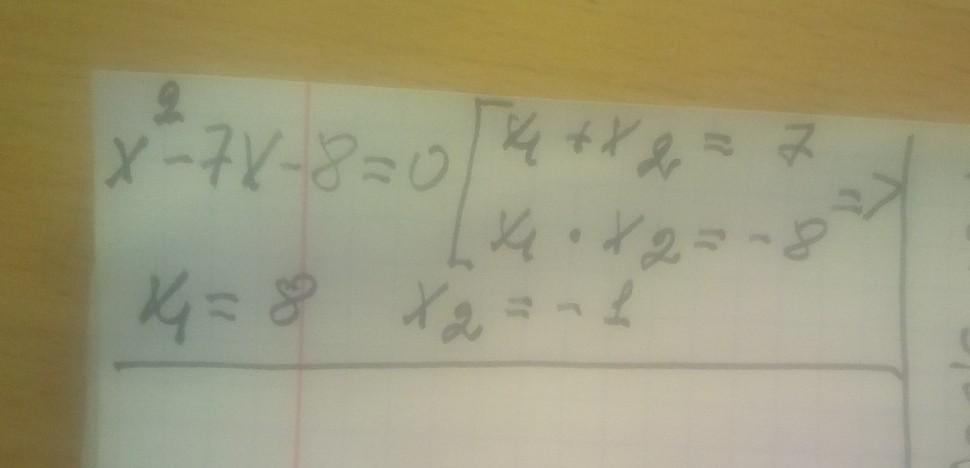 x² - 7x - 8 = 0 [ x₁ + x₂ = 7
x₁ · x₂ = -8 =>
x₁ = 8 x₂ = -1